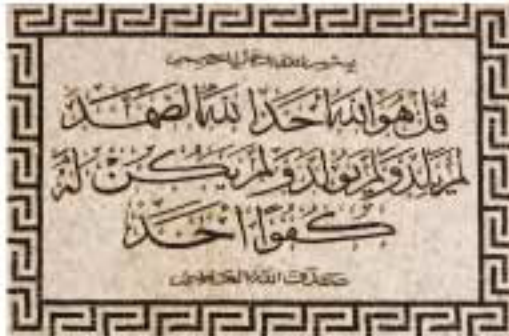 بسم الله الرحمن الرحيم
قل هو الله احد الله الصمد
لم يلد ولم يولد ولم يكن له
كفوا احد
صدق الله العظيم